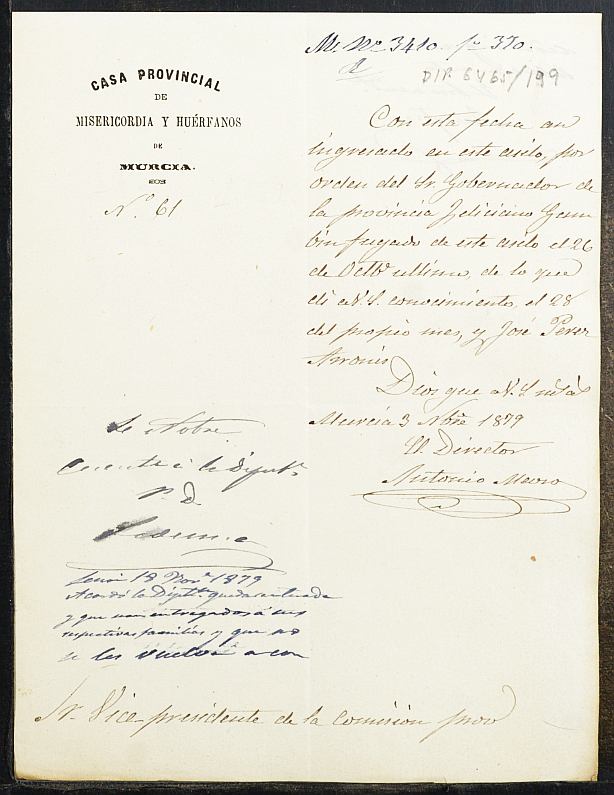 M. Nº 3410. fº 370.
DIP 6465/199
CASA PROVINCIAL
DE
MISERICORDIA Y HUÉRFANOS
DE
MURCIA.
Nº 61
Con esta fecha an
ingresado en este asilo, por
orden del Sr. Gobernador de
la provincia Feliciano
fugado de este asilo el 26
de Octbe ultimo, de lo que
di a V.S. conocimiento el 28
del propio mes, y José Perez
Dios gue a V.S. ms as
Murcia 3 Nbre 1879
El Director
Antonio
3 Nobre
Cuenta á la Diput
P D
Sesion 18 Novre 1879
Acordó la Diptn quedar enterada
y que sean entregados á sus
respectivas familias y que no
se les vuelva a con
Sr. Vice-presidente de la Comision prov